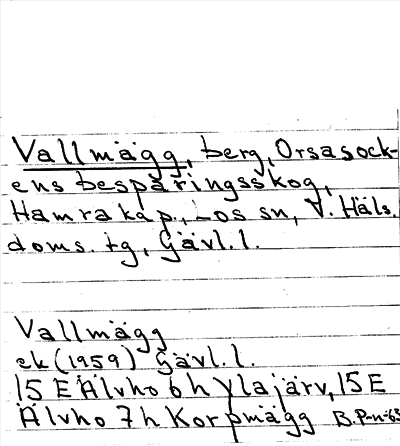 Vallmägg, berg, Orsasock-
ens besparingsskog,
Hamra kap., Los sn, V. Häls.
doms. tg, Gävl. l.
Vallmägg
ek (1959) Gävl. l.
15 E Älvho 6 h Ylajärv, 15 E
Älvho 7 h Korpmägg B.P-n-63